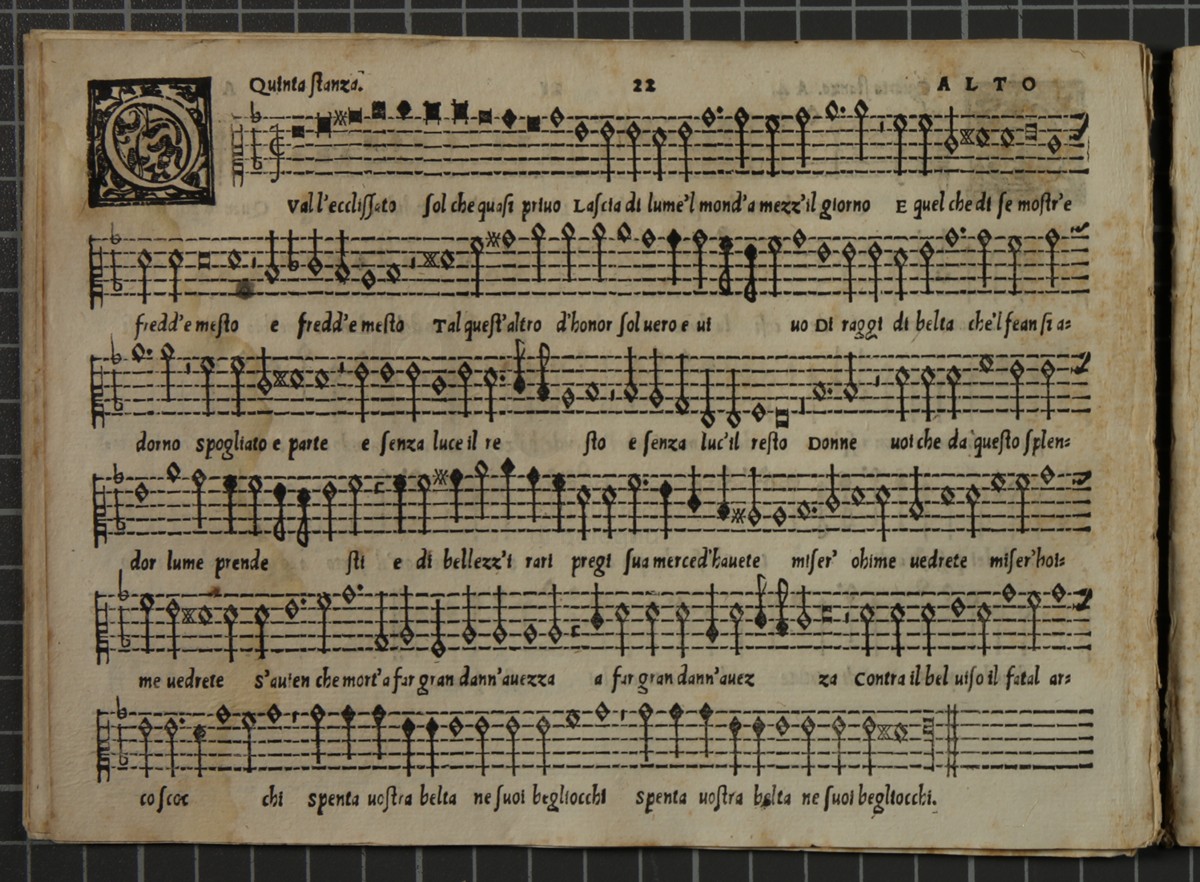 Quinta ſtanza. 22 ALTO
QVal l'eccliſſato ſol che quaſi priuo Laſcia di lume'l mond'a mezz'il giorno E quel che di ſe moſtr'e
fredd'e meſto e fredd'e meſto Tal queſt'altro d'honor ſol uero e ui uo Di raggi di belta che'l fean ſi a=
dorno spogliato e parte e ſenza luce il re ſto e ſenza luc'il reſto Donne uoi che da queſto ſplen=
dor lume prende ſti e di bellezz'i rari pregi ſua merced'hauete miſer' ohime uedrete miſer'hoi=
me uedrete S'auien che mort'a far gran dann'auezza a far gran dann'auez za Contra il bel uiſo il fatal ar=
co ſcoc chi spenta uoſtra belta ne ſuoi begliocchi spenta uoſtra belta ne ſuoi begliocchi.